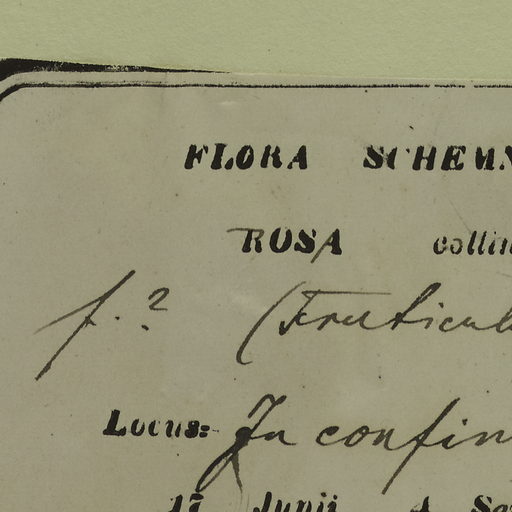 FLORA SCHEMN
ROSA collin
f. ? (Fruticul
Locus: In confin
17 Junii A. So